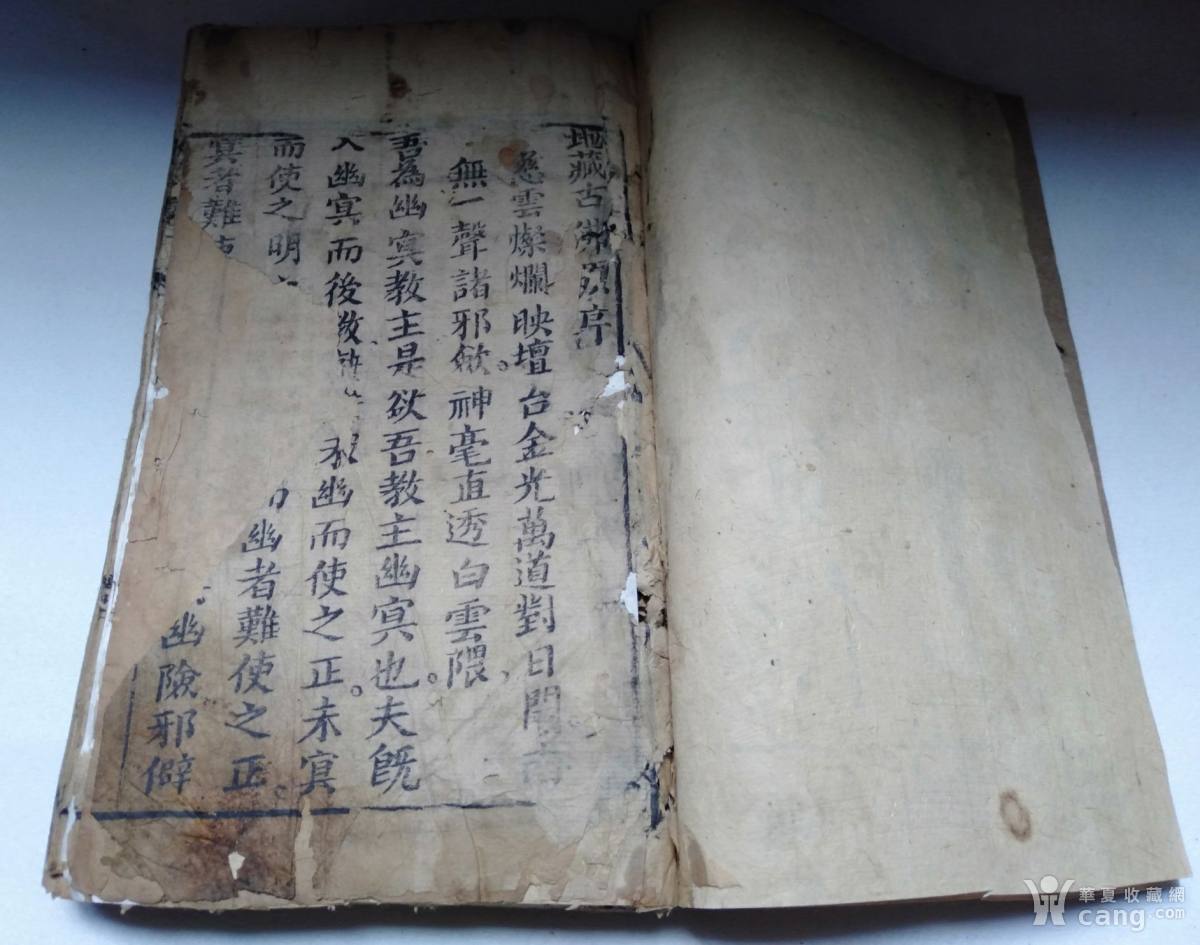 地藏古佛原序
慈雲燦爛映壇台金光萬道對日開南
無一聲諸邪斂。神毫直透白雲隈、
吾為幽冥教主是欲吾教主幽冥也。夫既
入幽冥而後教 幽而使之正。未冥
而使之明 幽者難使之正。
冥者難 幽險邪僻
華夏收藏網
cang.com